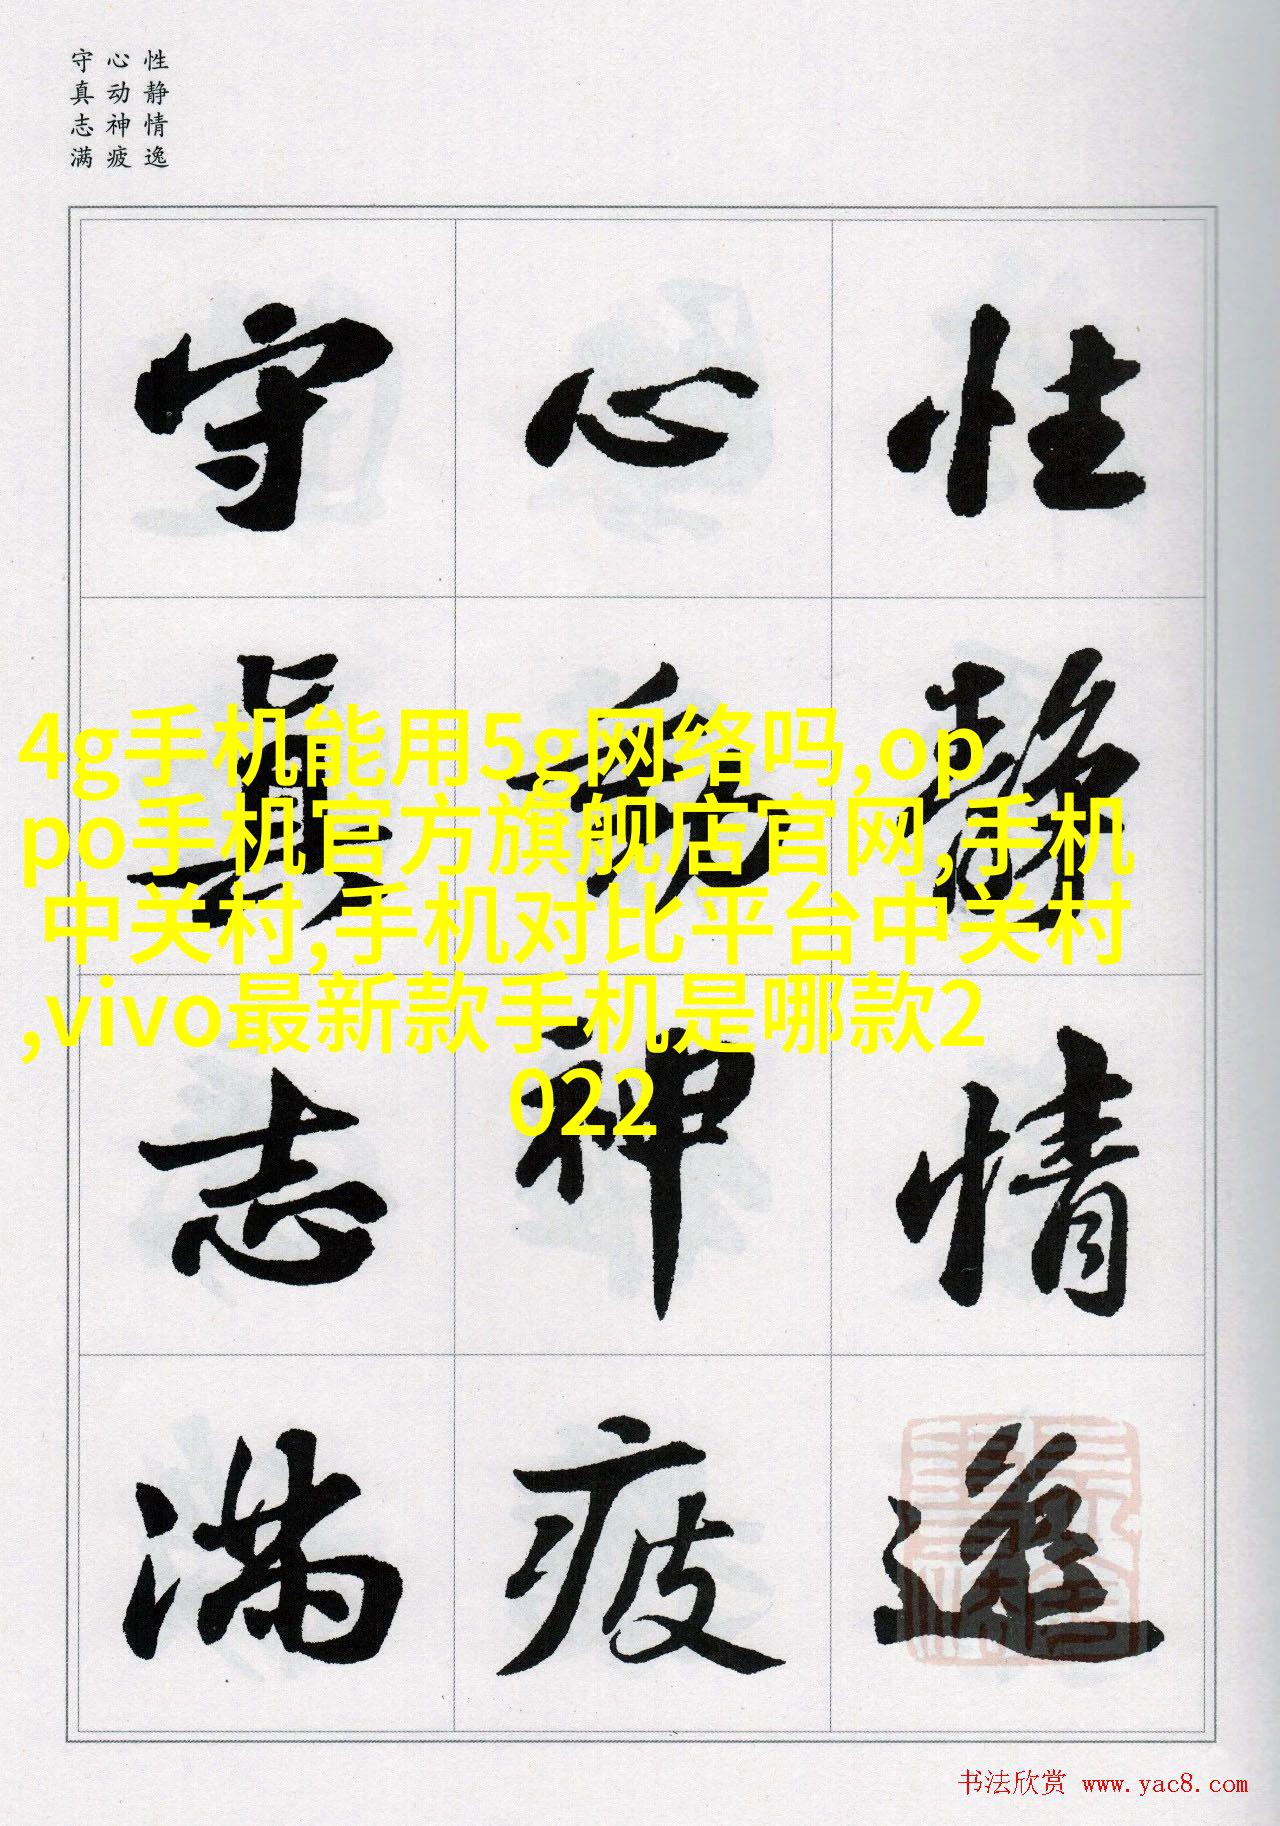 性静情逸
心动神疲
守真志满
性静情逸
心動神疲
守真志满
4g手机能用5g网络吗,op
po手机官方旗舰店官网,手机
中关村,手机对比平台中关村
,vivo最新款手机是哪款2
022
书法欣赏 www.yac8.com